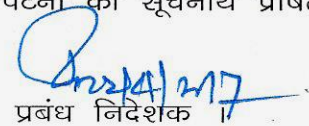 पटना को सूचनार्थ प्रेषित
22/4/2017
प्रबंध निदेशक ।